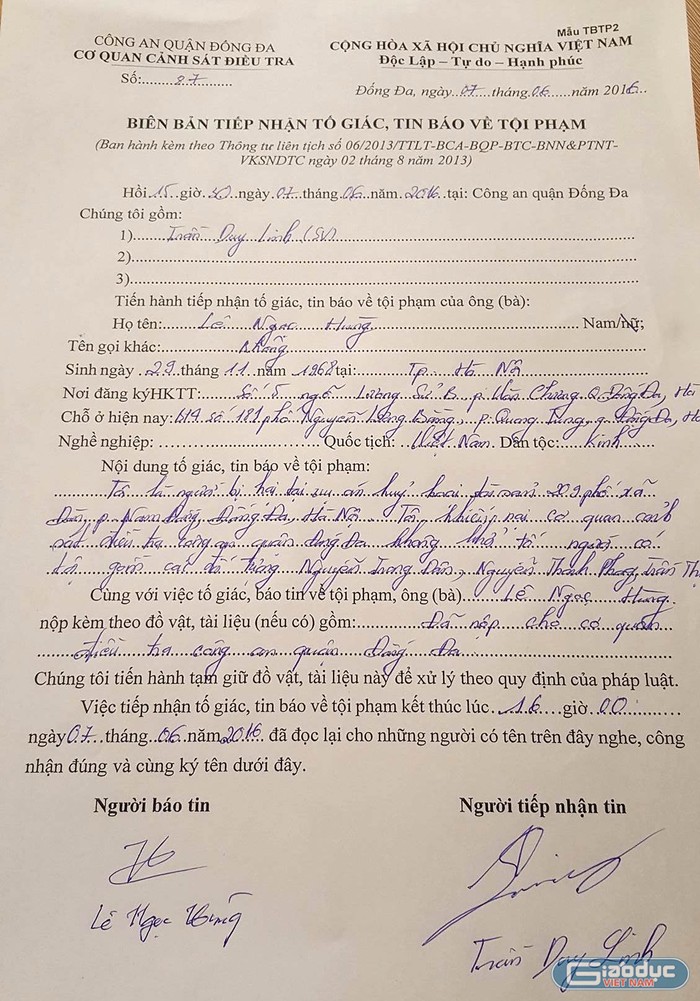 Mẫu TBTP2
CÔNG AN QUẬN ĐỐNG ĐA
CƠ QUAN CẢNH SÁT ĐIỀU TRA
Số:.........87..........
CỘNG HÒA XÃ HỘI CHỦ NGHĨA VIỆT NAM
Độc Lập – Tự do – Hạnh phúc
Đống Đa, ngày..07....tháng..06.....năm 2016..
BIÊN BẢN TIẾP NHẬN TỐ GIÁC, TIN BÁO VỀ TỘI PHẠM
(Ban hành kèm theo Thông tư liên tịch số 06/2013/TTLT-BCA-BQP-BTC-BNN&PTNT-
VKSNDTC ngày 02 tháng 8 năm 2013)
Hồi .15..giờ .30..ngày..07...tháng.06..năm..2016..tại: Công an quận Đống Đa
Chúng tôi gồm:
1).......Trần Duy Linh
2)...............
3)...............
Tiến hành tiếp nhận tố giác, tin báo về tội phạm của ông (bà):
Họ tên:......Lê Ngọc Hùng........Nam/nữ;
Tên gọi khác:..........Không..........
Sinh ngày ..29..tháng..11..năm .1968tại:........Tp. Hà Nội
Nơi đăng kýHKTT:....Số 5 ngõ Lương Sử B. p. Văn Chương, Q. Đống Đa, Hà
Chỗ ở hiện nay: số 181 phố Nguyễn Lương Bằng, p. Quang Trung, q. Đống Đa, Hà
Nghề nghiệp: ..................Quốc tịch: ..Việt Nam. Dân tộc:...Kinh........
Nội dung tố giác, tin báo về tội phạm:
.......Tôi là người bị hại tại vụ án huỷ hoại tài sản 209 phố xã
Đàn, p. Nam Đồng, Đống Đa, Hà Nội. Tôi khiếu nại cơ quan cảnh
sát điều tra công an quận đống Đa không khởi tố người có
gồm các đối tượng Nguyễn Trọng Dân, Nguyễn Thành Phong, Trần Thị
Cùng với việc tố giác, báo tin về tội phạm, ông (bà)....Lê Ngọc Hùng.
nộp kèm theo đồ vật, tài liệu (nếu có) gồm:.......Đã nộp cho cơ quan
điều tra công an quận Đống Đa..........
Chúng tôi tiến hành tạm giữ đồ vật, tài liệu này để xử lý theo quy định của pháp luật.
Việc tiếp nhận tố giác, tin báo về tội phạm kết thúc lúc..16...giờ .00........
ngày07..tháng..06.năm2016...đã đọc lại cho những người có tên trên đây nghe, công
nhận đúng và cùng ký tên dưới đây.
Người báo tin
Người tiếp nhận tin
Lê Ngọc Hùng
Trần Duy Linh
Giaoduc
VIỆT NAM